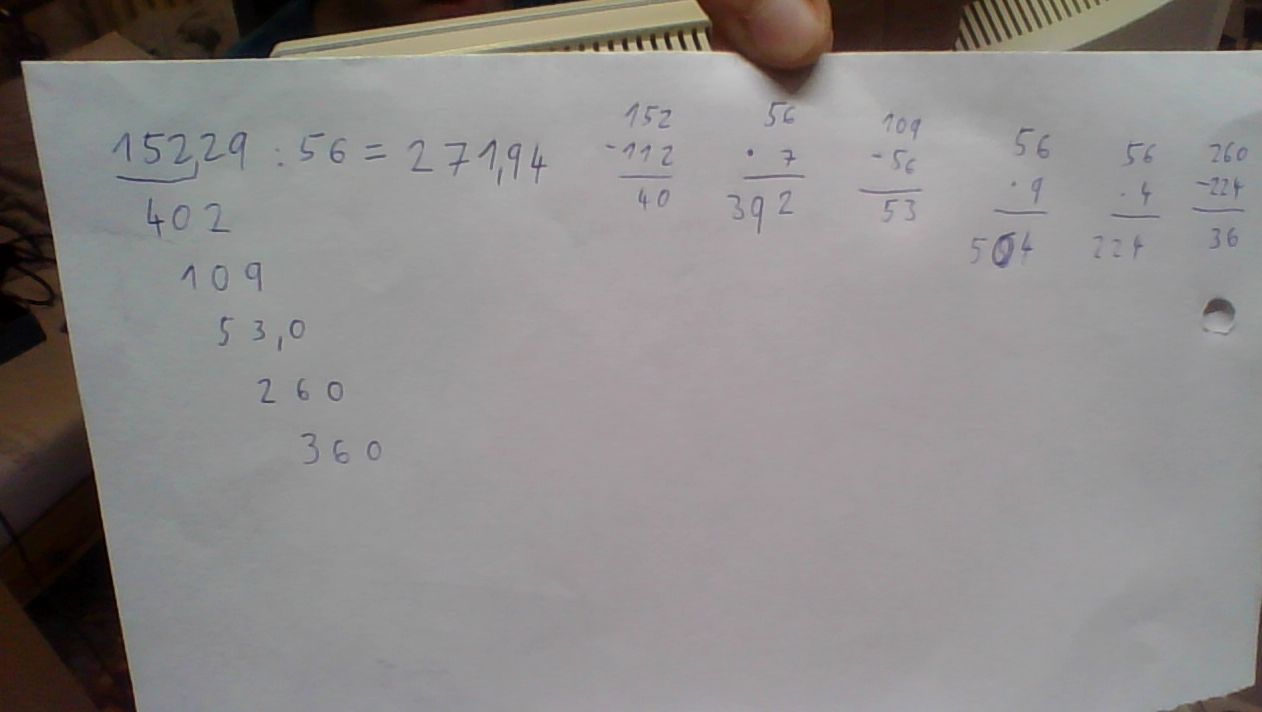 152,29 : 56 = 271,94
402
109
53,0
260
360
152
-112
40
56
· 7
392
109
-56
53
56
· 9
504
56
· 4
224
260
-224
36